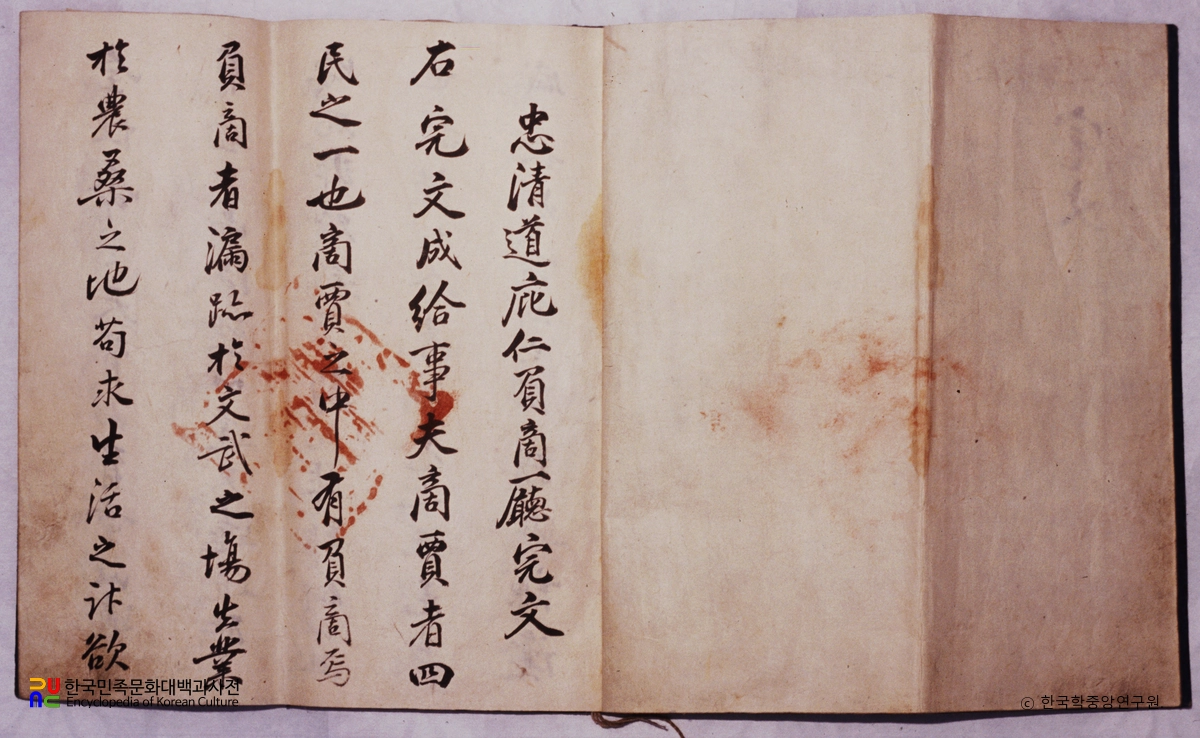 忠清道庇仁負商廳完文
右完文成給事夫商賈者四
民之一也商賈之中有負商焉
負商者漏跡於文武之場生業
於農桑之地苟求生活之計欲
한국민족문화대백과사전
Encyclopedia of Korean Culture
ⓒ 한국학중앙연구원